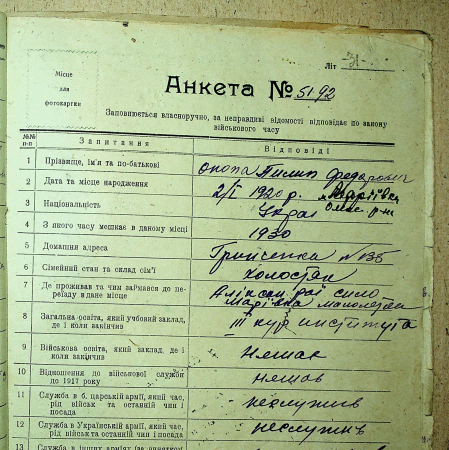 Місце
для
фотокартки
Літ
Анкета № 5192
Заповнюється власноручно, за неправдиві відомості відповідає по закону
військового часу
№№
п-п
Запитання
Відповіді
1 Прізвище, ім'я та по-батькові
2 Дата та місце народження 2/I 1920 р.
3 Національність Укра
4 З якого часу мешкає в даному місці 1930
5 Домашня адреса Грінченка №35
6 Сімейний стан та склад сім'ї холостяк
7 Де проживав та чим займався до пе-
реїзду в дане місце село
8 Загальна освіта, який учбовий заклад,
де і коли закінчив III кур института
9 Військова освіта, який заклад, де і
коли закінчив немає
10 Відношення до військової служби
до 1917 року немав
11 Служба в б. царській армії, який час,
рід військ та останній чин і
посада неслужив
12 Служба в Українській армії, який час,
рід військ та останній чин і посада неслужив
13